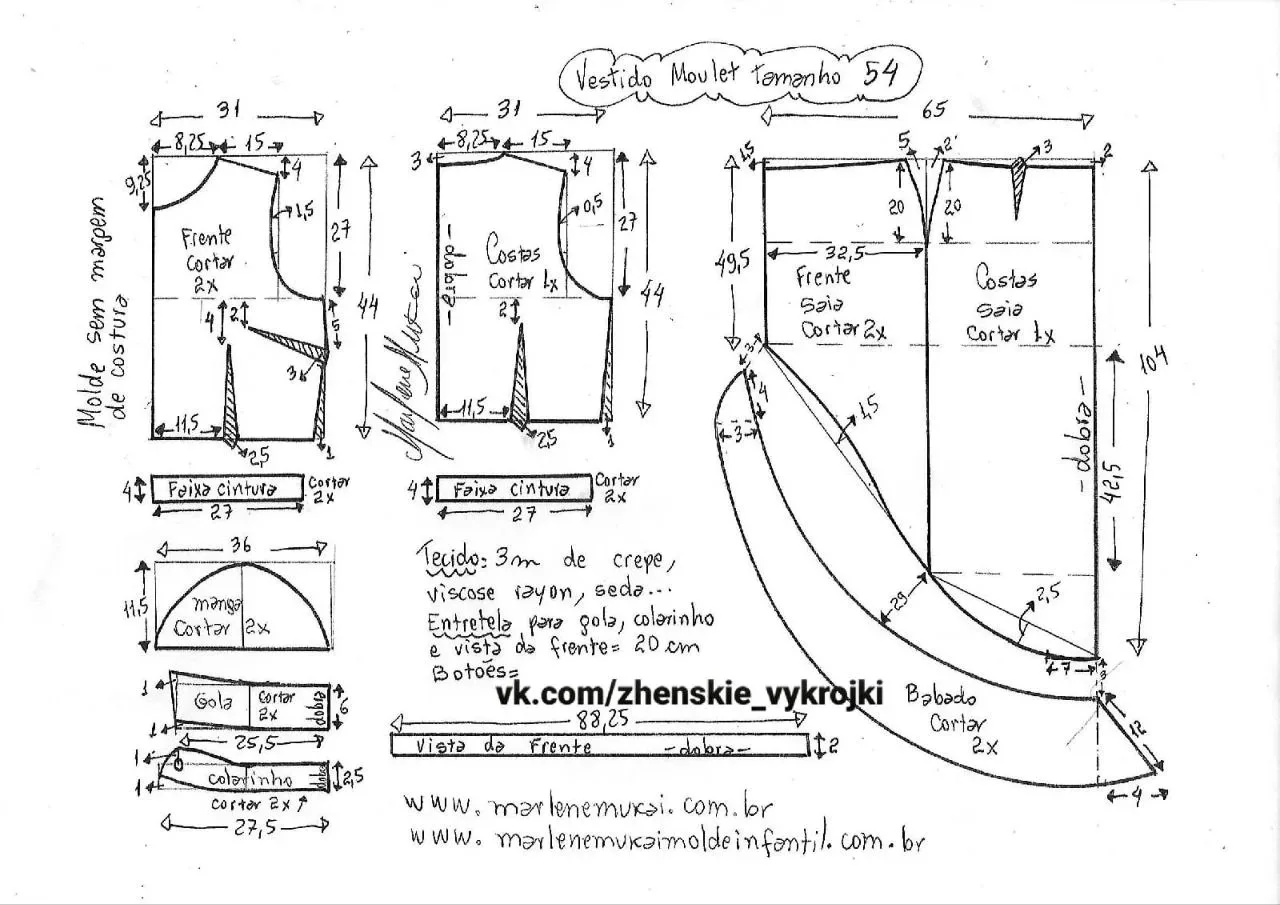 Vestido Moulet tamanho 54
31
8,25
15
4
9,25
1,5
27
44
Frente
Cortar
2x
4
2
5
3
11,5
2,5
1
Molde sem margem
de costura
31
8,25
15
3
4
0,5
27
44
-dobra-
Costas
Cortar 1x
2
11,5
2,5
1
65
1,5
5
2
3
2
20
20
49,5
32,5
Frente
saia
Cortar 2x
Costas
saia
Cortar 1x
104
-dobra-
42,5
3
4
3
1,5
29
2,5
7
3
12
4
Babado
Cortar
2x
4
Faixa cintura
Cortar
2x
27
4
Faixa cintura
Cortar
2x
27
36
11,5
manga
Cortar 2x
Tecido: 3m de crepe,
viscose rayon, seda...
Entretela para gola, colarinho
e vista da frente= 20 cm
Botões=
vk.com/zhenskie_vykrojki
1
Gola
Cortar
2x
dobra
6
1
25,5
1
colarinho
dobra
2,5
1
cortar 2x
27,5
88,25
Vista da Frente -dobra-
2
www.marlenemukai.com.br
www.marlenemukaimoldeinfantil.com.br